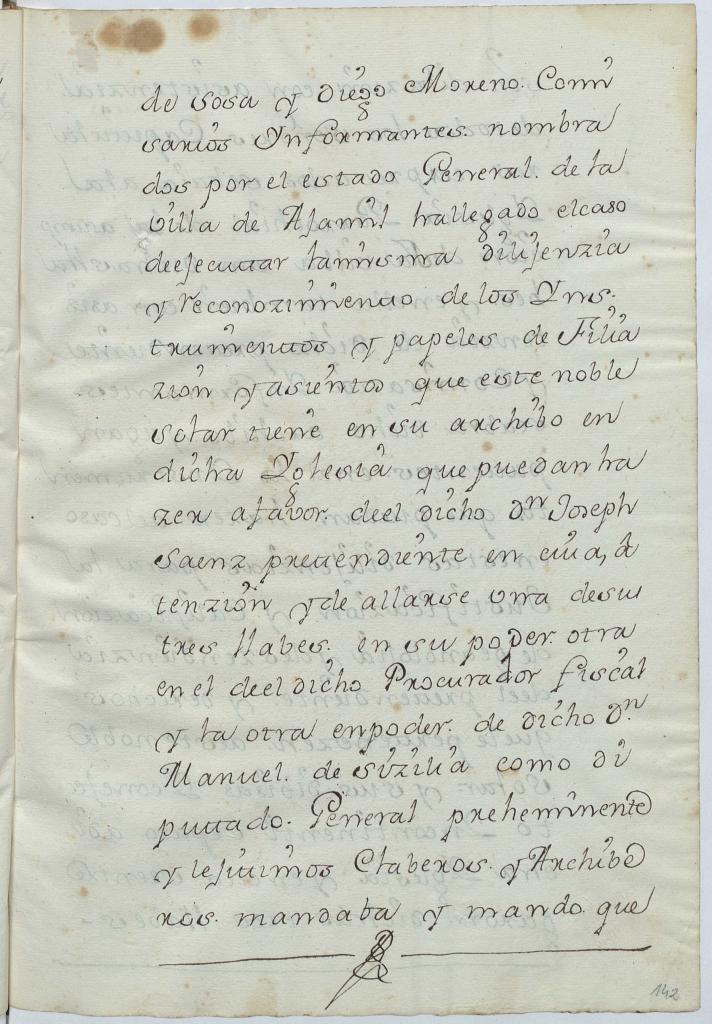 de sosa y Diego Moreno Comi
sarios Informantes. nombra
dos por el estado General. de la
villa de Ajamil hallegado elcaso
deejecuttar lamisma dilijenzia
y reconozimientto de los Yns.
trumenttos y papeles de Filia
zion yasientos que este noble
solar tiene en su archibo en
dicha Yglesia que puedan ha
zer afavor. deel dicho Dn Joseph
Saenz prettendiente en cuia, a
tenzion y de allarse una desus
tres llabes. en su poder. otra
en el deel dicho Procurador fiscal
y la otra enpoder. de dicho Dn.
Manuel. de sizilia como di
puttado. General preheminente
y lejitimos Claberos. y Archibe
ros. mandaba y mando. que
142